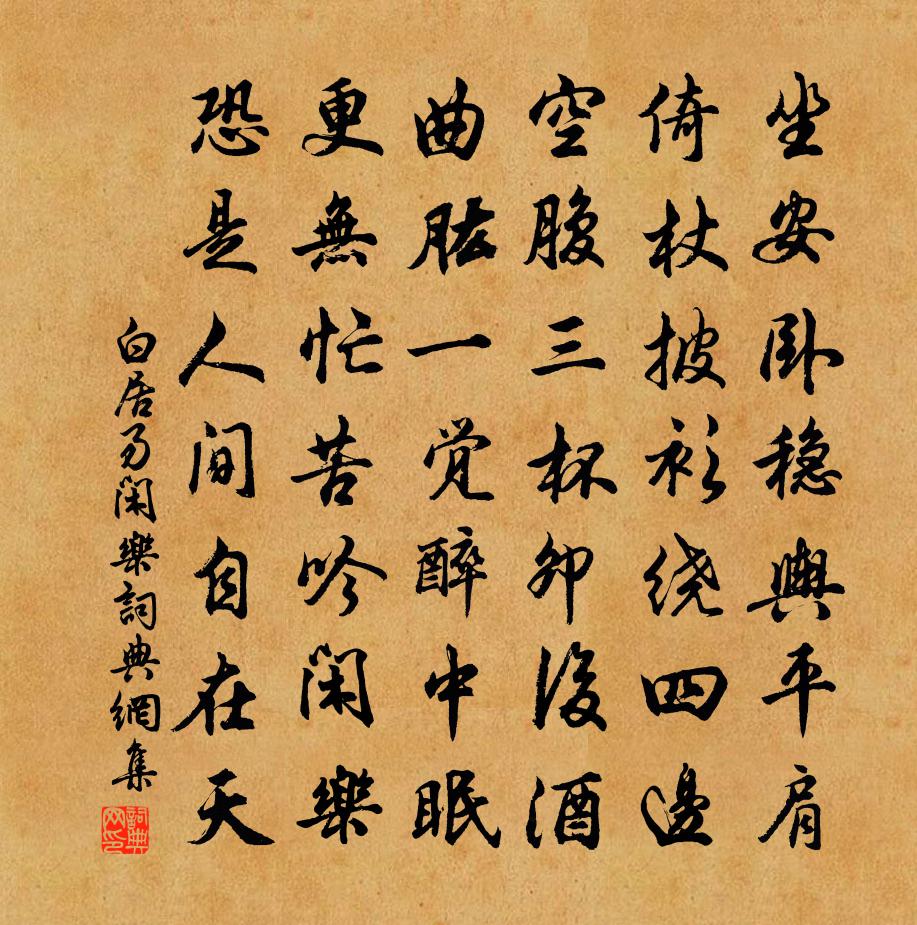 坐安卧穏輿平肩
倚杖披衫绕四邊
空腹三杯卯後酒
曲肱一觉醉中眠
更無忙苦吟闲樂
恐是人间自在天
白居易闲樂詞典網集
詞典网印